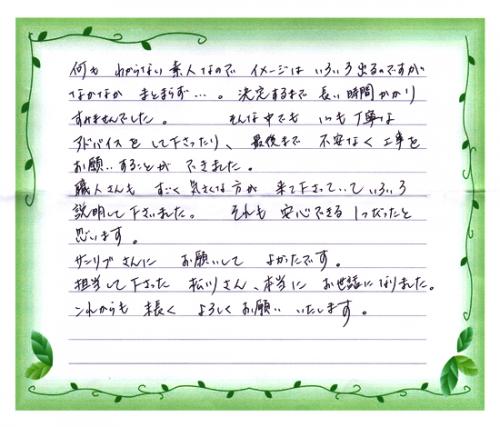 何も わからない 素人なので イメージは いろいろ出るのですが
なかなか まとまらず…。決定するまで 長い時間がかかり
すみませんでした。 そんな中でも いつも丁寧な
アドバイスを して下さったり、最後まで 不安なく工事を
お願いすることが できました。
職人さんも すごく気さくな方が 来て下さっていていろいろ
説明して下さいました。 それも 安心できる1つだったと
思います。
サンリブさんに お願いして よかったです。
担当して下さった 松川さん、本当に お世話になりました。
これからも 末長く よろしくお願い いたします。